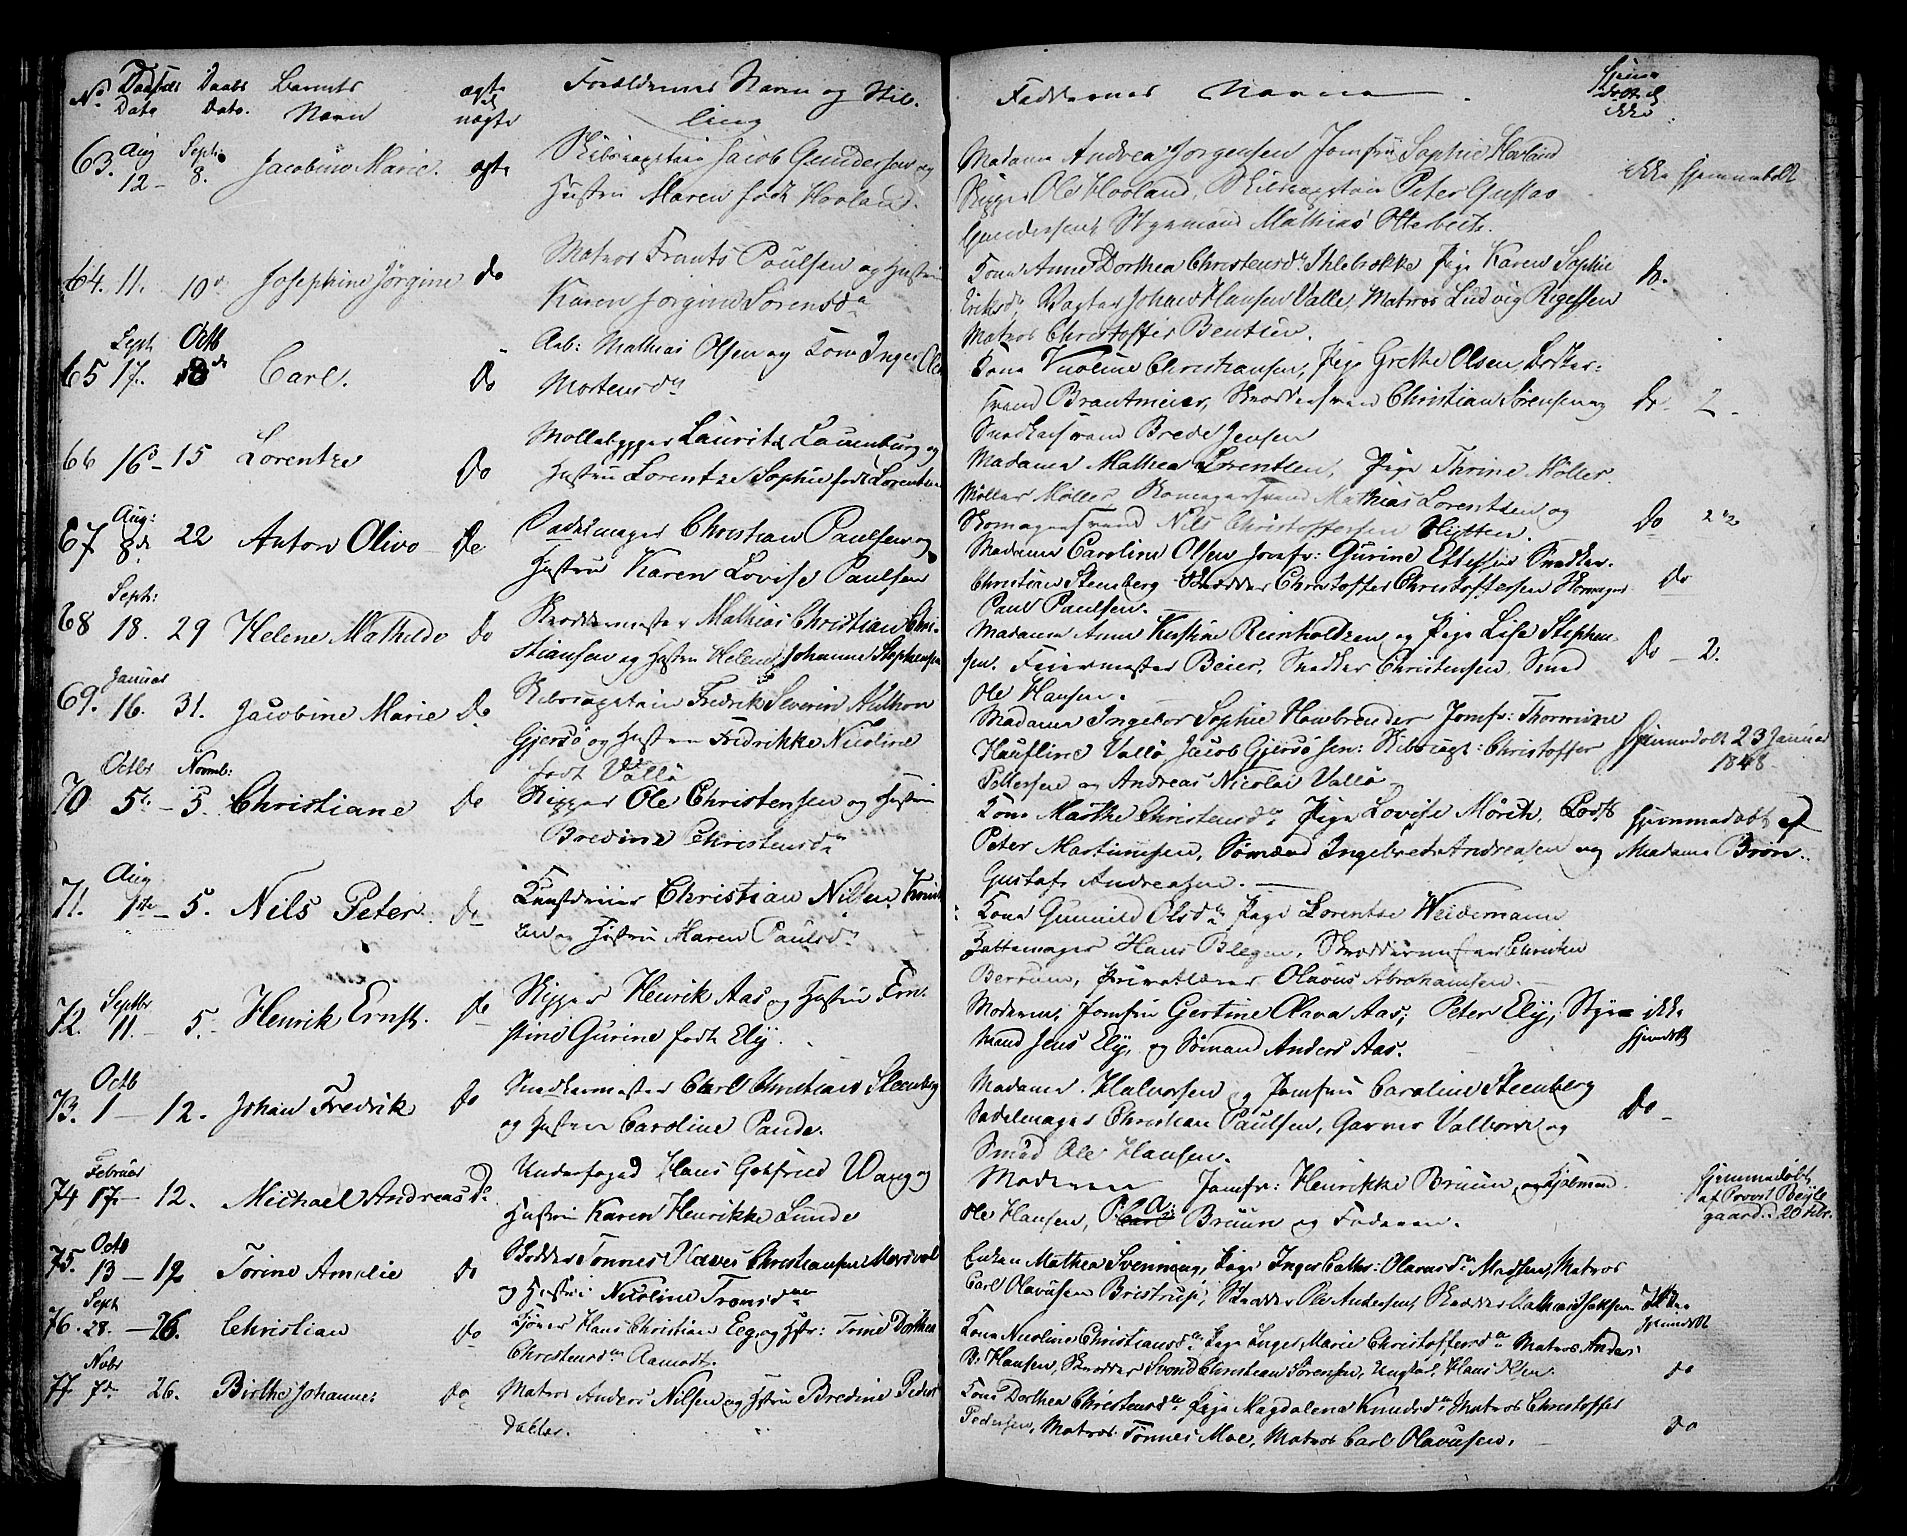 No Fødsels Daabs Barnets ægte Forældrenes Navn og Stil-
Data Dato. Navn uægte ling
Faddernes Navne
63. Aug 12 - Septb 8. Jacobine Marie. ægte
Skibscaptain Jacob Gundersen og
Hustru Maren født Hovland.
Madame Andrea Jørgensen Jomfru Sophie Hovland
Skipper Ole Hovland, Skibscaptain Peter Gustav
Gundersen, Styrmand Mathias Otterbech.
ikke hjemmedøbt
64. 11. 10de Josephine Jørgine do
Matros Frants Paulsen og Hustru
Karen Jørgine Sørensda
Kone Anne Dorthea Christensda Ihlebække Pige Karen Sophie
Eriksda, Vægter Johan Hansen Valle, Matros Ludvig
Matros Christoffer Bentsen.
do.
65 Sept 17. Octb 8de Carl. Do
Arb: Mathias Olsen og Kone Inger Ole
Mortensda
Kone Christiansen, Pige Grethe Olsen,
svend Brantmeier, Skræddersvend Christian Sørensen og
Snedkersvend Brede Jensen
Do. 2.
66 16 - 15 Lorentze Do
Møllebygger Lauritz Lauenburg og
Hustru Lorentze Sophie født Lorentzen
Madame Mathea Lorentzen, Pige Thrine Møller.
Møller Møller, Skomagersvend Mathias Lorentzen og
Skomagersvend Nils Christoffersen Hytten.
Do
67 Aug: 8de 22 Anton Olivo Do
Sadelmager Christian Paulsen og
Hustru Karen Lovise Paulsen
Madame Caroline Olsen Jomfr: Gurine Snedker.
Christian Stensberg Skrædder Christoffer Christoffersen Skomager
Paul Paulsen.
Do
68 Septr: 18. 29 Helene Mathilde Do
Skræddermester Mathias Christian Chri-
stiansen og Hustru Helene Johanne Stephensen
Madame Anne Kirstine Reinholdtzen og Pige Lise Stephen-
sen. Feiermester Beier, Snedker Christensen, Smed
Ole Hansen.
Do - 2.
69. Januar 16. 31. Jacobine Marie Do
Skibscaptain Fredrik Severin Anthon
Gjersø og Hustru Fredrikke Nicoline
født Vallø
Madame Ingebor Sophie Jomfr: Thormine
Vallø Jacob Gjersø sen: Skibscapt: Christoffer
Pettersen og Andreas Nicolai Vallø
Hjemmedøbt 23 Januar
1848
70 Octbr 5te - Novmb: 5. Christiane Do
Skipper Ole Christensen og Hustru
Bredine Christensda
Kone Marthe Christensda, Pige Lovise Mörch, Lods
Peter Martinusen, Sømænd Ingebret Andreasen og
Gustav Andreasen.
hjemmedøbt af
Madame Brøn..
71. Aug 1ste - 5. Nils Peter. Do
Kunstdreier Christian Nilsen
og Hustru Maren Paulsda
Kone Gunnild Olsda Pige Lorentze Weidemann
Hattemager Hans Blegen, Skræddermester Christen
Berrum, Privatlærer Olavus Abrahamsen.
72. Septbr 11. - 5. Henrik Ernst. Do
Skipper Henrik Aas og Hustru Ern-
stine Gurine født Ely.
Moderen, Jomfru Gertine Olava Aas, Peter Ely, Styr-
mand Jens Ely, og Sømand Anders Aas.
ikke
hjemdøbt
73. Octb 1 - 12. Johan Fredrik Do
Snedkermester Carl Christian Steenberg
og Hustru Caroline Pande.
Madame Halvorsen og Jomfru Caroline Steenberg
Sadelmager Christian Paulsen, Garver Valborde og
Smed Ole Hansen.
Do -
74 Februar 17. - 12. Michael Andreas Do
Underfoged Hans Gotfried Wang og
Hustru Karen Henrikke Lunde
Moderen Jomfr: Henrikke Bruun, og Kjøbmand
Ole Hansen, P. A: Bruun og Faderen.
Hjemmedøbt
af Provst Beigle
gaard. 20 Febr.
75. Octb 13 - 12 Torine Amalie Do
Skrædder Tønnes Olaves Christiansen
og Hustru Nicoline Tronsdaa
Enken Mathea Svenning, Pige Inger Cathr: Olavusda Madsen, Matros
Carl Olavusen Bristrup, Skrædder Ole Andersen, Skrædder Mathias Jakobsen
Ikke
hjemdøbt
76. Sept 28. - 26. Christian do
Hans Christian Eeg og Hstr: Trine Dorthea
Christensdaa Aamodt.
Kone Nicoline Christiansdaa Pige Inger Marie Christoffersdaa Matros Anders
B. Hansen, Skrædder Svend Christian Sørensen, Ungkarl Hans Olsen.
do
77 Novbr 7de - 26. Birthe Johanne do
Matros Anders Nilsen og Hstru Bredine Peders
datter.
Kone Dorthea Christensdaa, Pige Magdalena Knudsda Matros Christoffer
Pedersen, Matros Tønnes Moe, Matros Carl Olavusen.
do